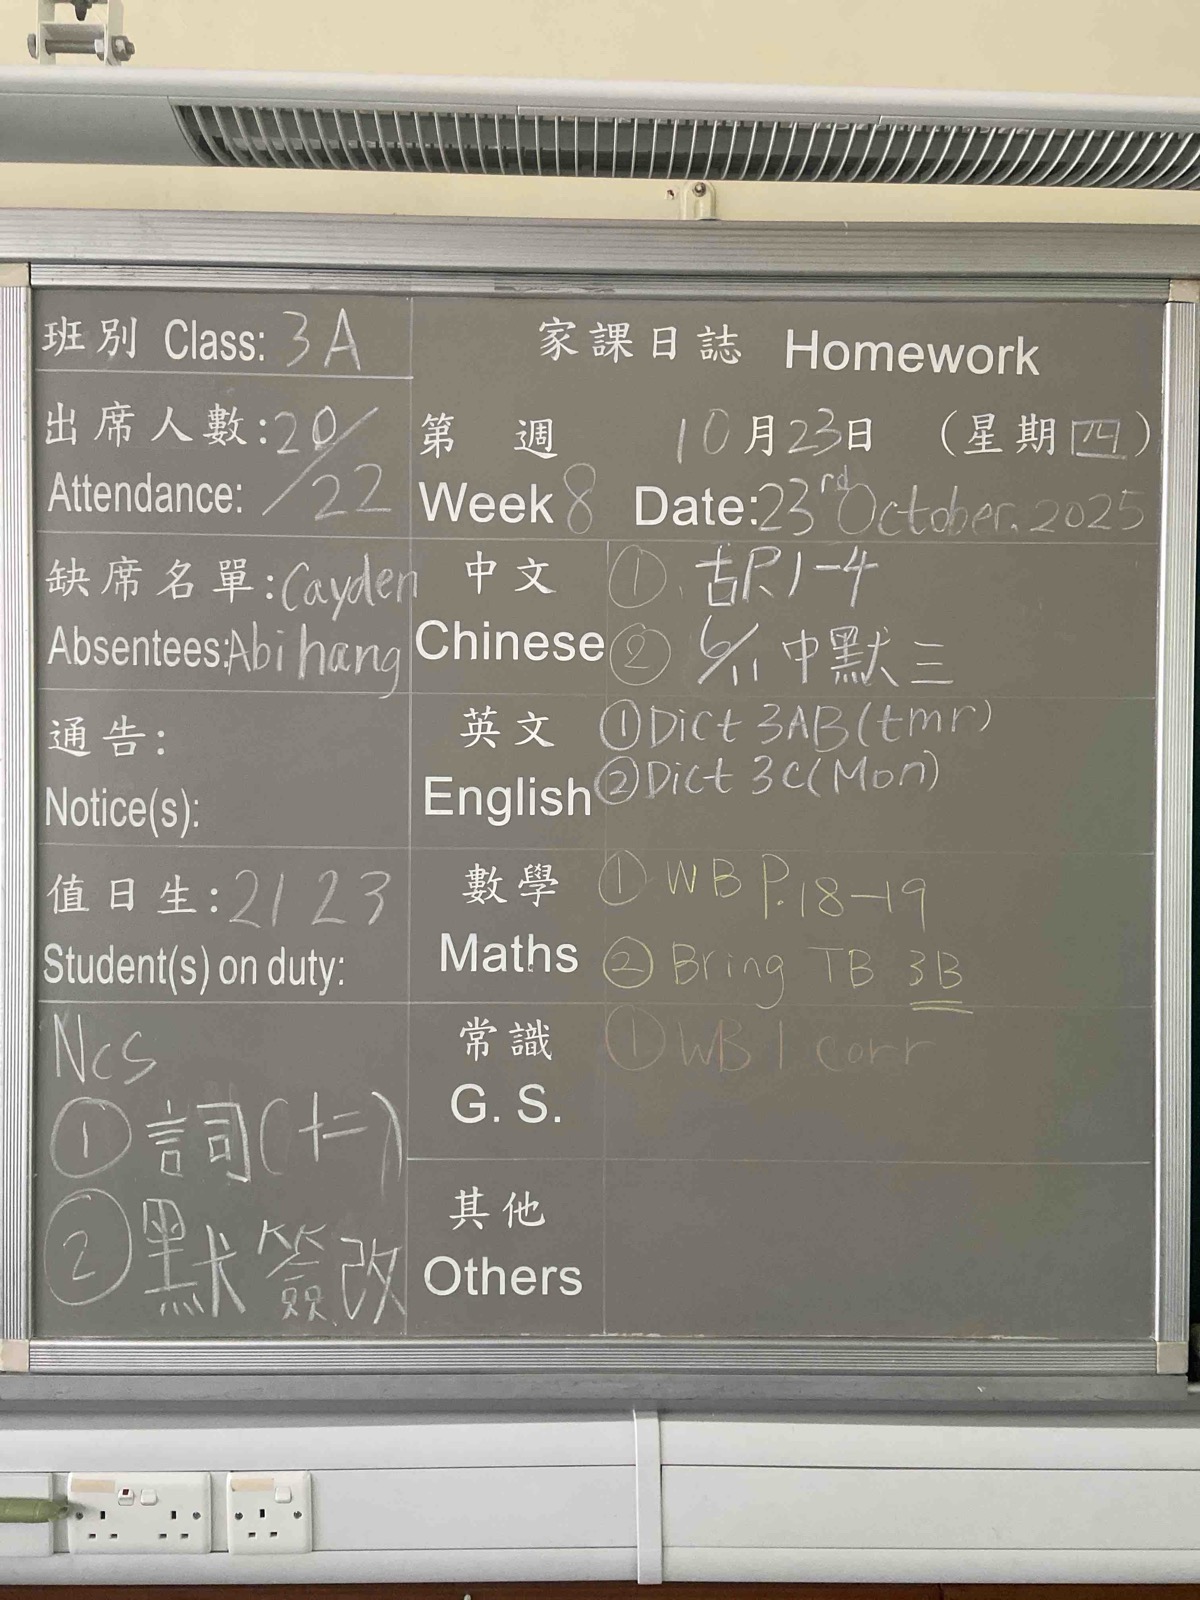 班別 Class: 3A
出席人數: 20/22
Attendance:
缺席名單: Cayden
Absentees: Abihang
通告:
Notice(s):
值日生: 21 23
Student(s) on duty:
Ncs
① 詞(十二)
② 默簽改
家課日誌 Homework
第 週 10月23日 (星期四)
Week 8 Date: 23rd October. 2025
中文
Chinese
① 1-4
② 6/11 中默三
英文
English
① Dict 3AB (tmr)
② Dict 3C (Mon)
數學
Maths
① WB P.18-19
② Bring TB 3B
常識
G. S.
① WB 1 corr
其他
Others